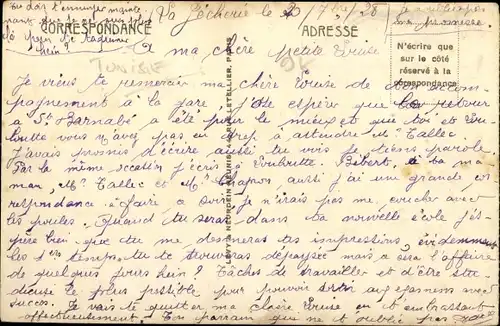 La Pécherie le 20/7bre/28 je m'échappe
CORRESPONDANCE
ADRESSE
ma promesse
N'écrire que
sur le côté
réservé à la
Correspondance
TUNISIE
ma chère petite Louise
Je viens te remercier ma chère Louise de
pagnement à la gare, j'ose espérer que le retour
à St Barnabé a été pour le mieux et que toi et Lou-
loutte vous n'avez pas eu trop à attendre Mr Tallec
J'avais promis d'écrire aussi tu vois je tiens parole
Par la même occasion j'écris à Loubrutte, Bibert, à ta ma-
man, Mr Tallec et Mr Chapron, aussi j'ai une grande cor
respondance à faire ce soir je n'irais pas me coucher avec
les poules. Quand tu seras dans ta nouvelle école j'es-
père bien que tu me donneras tes impressions, évidemment
les 1ers temps tu te trouveras dépaysée mais ce sera l'affaire
de quelques jours hein? Tâches de travailler et d'être stu-
dieuse le plus possible pour pouvoir aux examens avec
succès. Je vais te quitter ma chère Louise en t'embrassant
affectueusement. Ton parrain qui ne t'oublie pas
LEVY ET NEURDEIN REUNIS, 44, RUE LETELLIER, PARIS